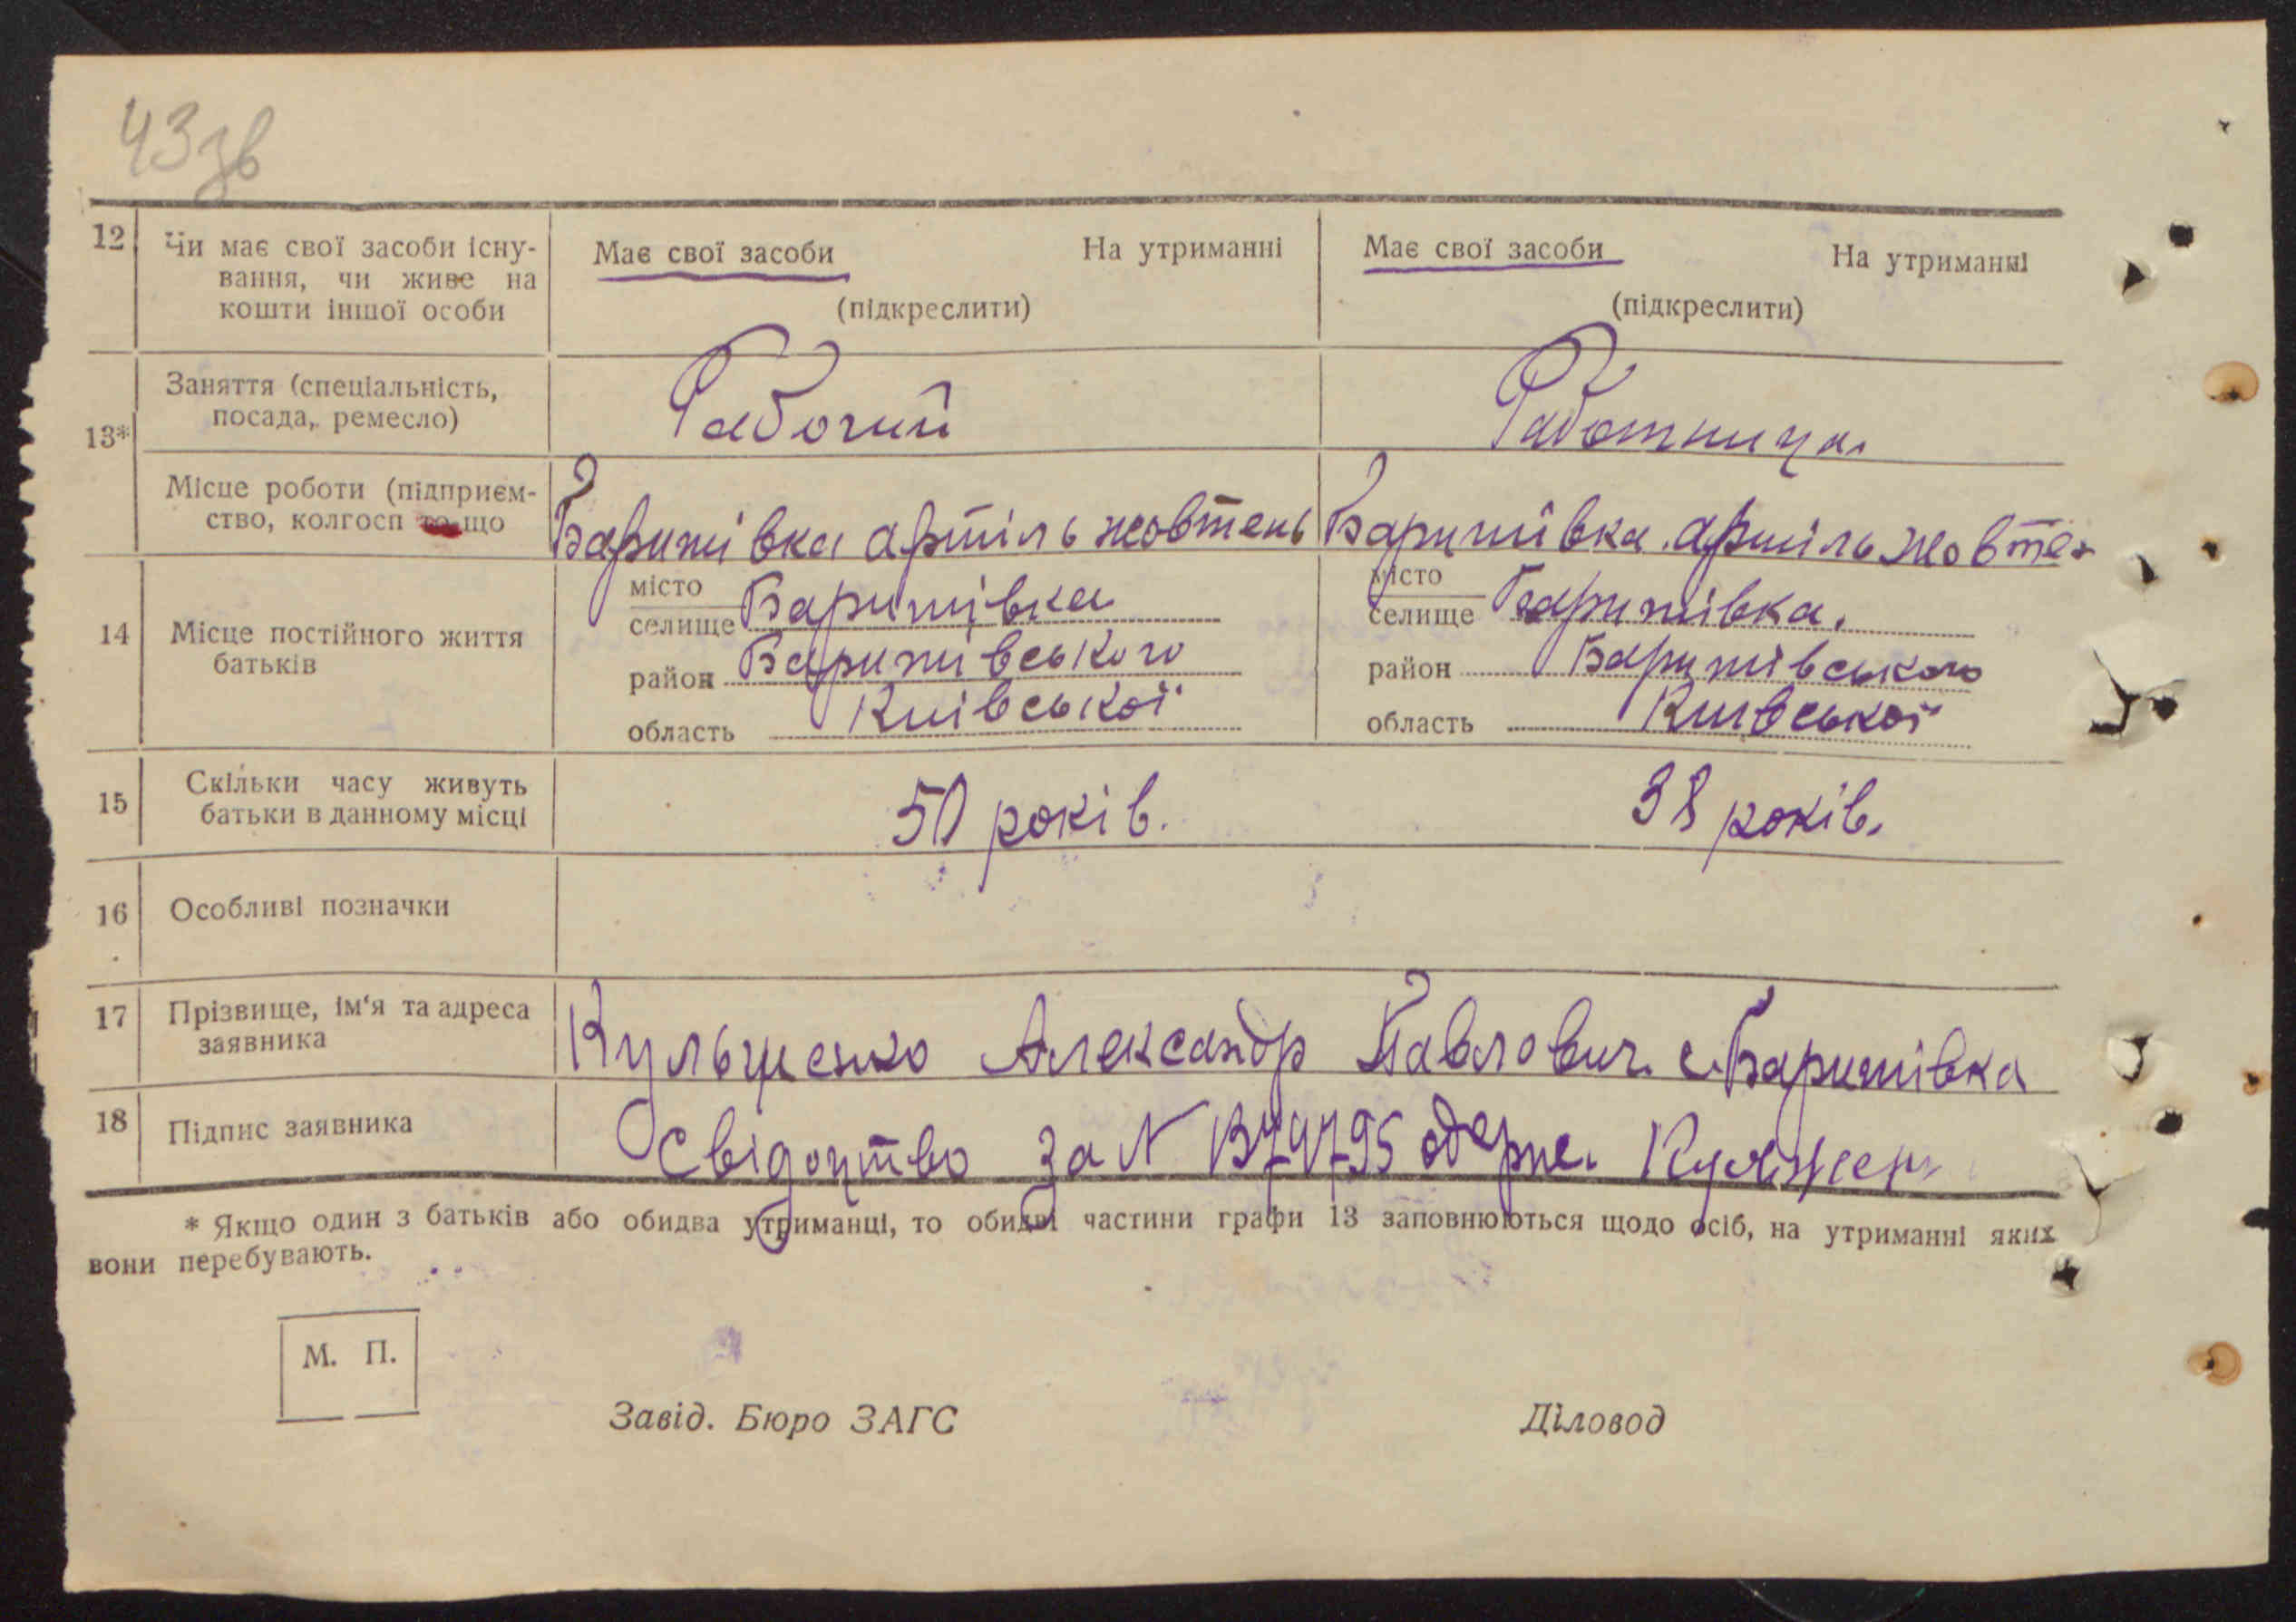 43зв
12 Чи має свої засоби існу- Має свої засоби На утриманні Має свої засоби На утриманні
вання, чи живе на
кошти іншої особи (підкреслити) (підкреслити)
Заняття (спеціальність,
посада, ремесло) Рабочий Работница
13*
Місце роботи (підприєм-
ство, колгосп то що Баришівка артіль жовтень Баришівка артіль жовтен
місто місто
селище Баришівка селище Баришівка.
14 Місце постійного життя
батьків
район Баришівського район Баришівського
область Київської область Київської
15 Скільки часу живуть
батьки в данному місці 50 років. 38 років.
16 Особливі позначки
17 Прізвище, ім'я та адреса
заявника Кульщенко Александр Павлович с. Баришівка
18 Підпис заявника Свідоцтво за N одерже.
* Якщо один з батьків або обидва утриманці, то обидві частини графи 13 заповнюються щодо осіб, на утриманні яких
вони перебувають.
М. П.
Завід. Бюро ЗАГС Діловод